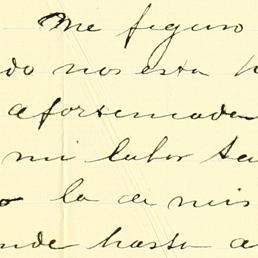 Me figuro
do nos esta
afortunada
mi labor
la de mis
nde hasta a